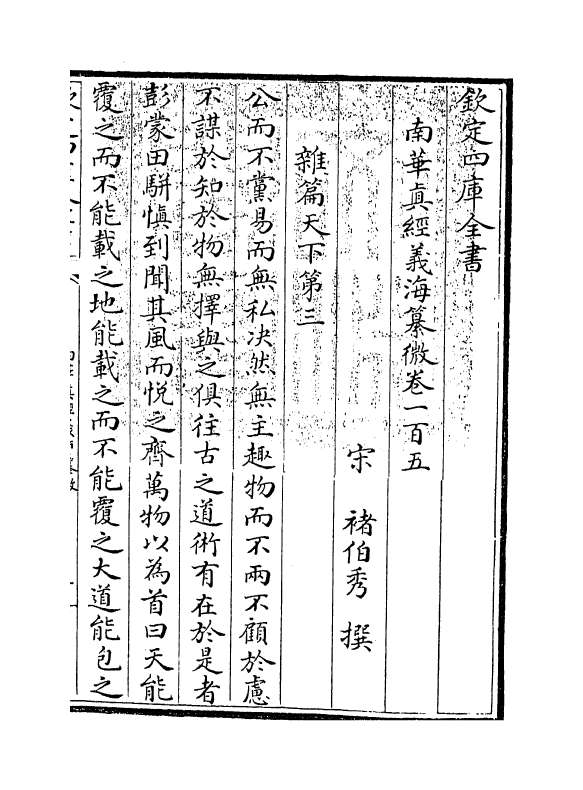 欽定四庫全書
南華真經義海纂微卷一百五
宋　褚伯秀　撰
雜篇天下第三
公而不黨易而無私决然無主趣物而不兩不顧於慮
不謀於知於物無擇與之俱往古之道術有在於是者
彭蒙田駢慎到聞其風而悅之齊萬物以為首曰天能
覆之而不能載之地能載之而不能覆之大道能包之